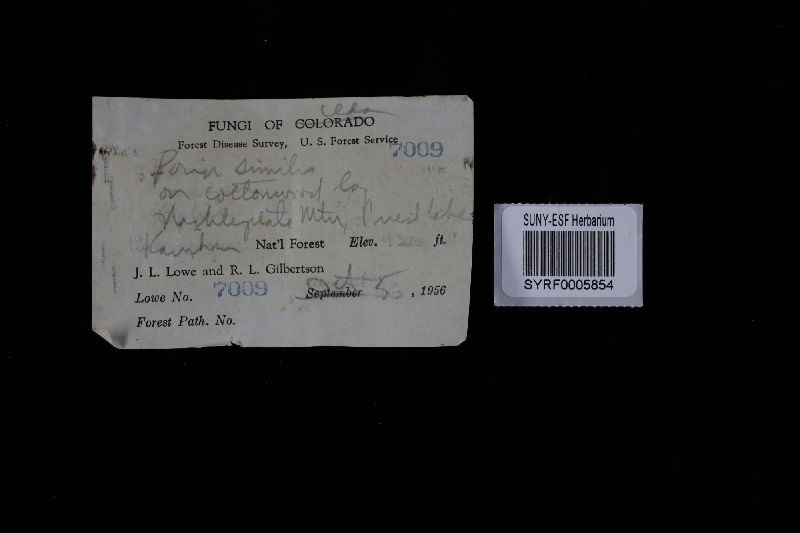 FUNGI OF COLORADO
Forest Disease Survey, U. S. Forest Service
7009
Poria similis
on cottonwood log
Mtn,
Nat'l Forest Elev. ft.
J. L. Lowe and R. L. Gilbertson
Lowe No. 7009 September Oct 5 , 1956
Forest Path. No.
SUNY-ESF Herbarium
SYRF0005854